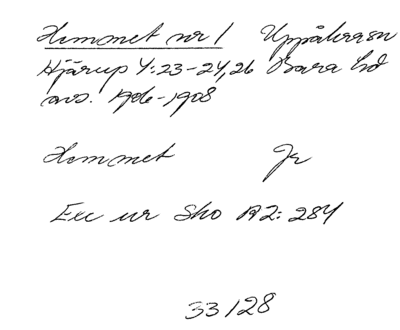 Hemmet nr 1 Uppåkra sn
Hjärup 4:23-24,26 Bara hd
avs. 1906-1908
Hemmet Jr
Exc ur Sko A2: 284
33/28